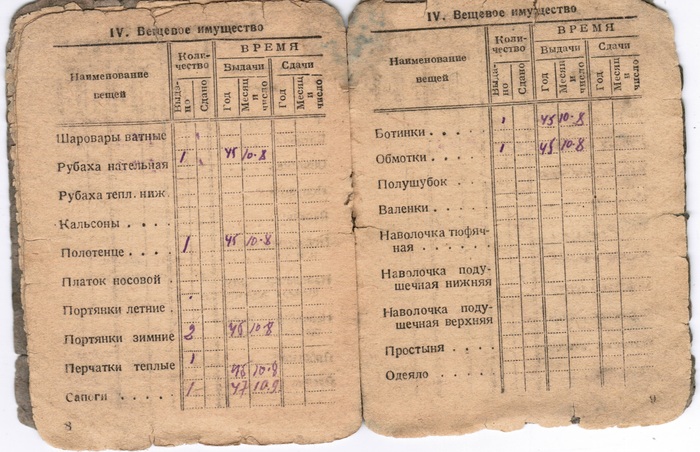 IV. Вещевое имущество
Наименование
вещей
Коли-
чество
ВРЕМЯ
Выдачи
Сдачи
Выда-
но
Сдано
Год
Месяц
и
число
Год
Месяц
и
число
Шаровары ватные
Рубаха нательная 1 45 10.8
Рубаха тепл. ниж.
Кальсоны . . . .
Полотенце . . . . 1 45 10.8
Платок носовой .
Портянки летние .
Портянки зимние 2 45 10.8
Перчатки теплые 1 45 10.8
Сапоги . . . . . 1 47 10.9
8
IV. Вещевое имущество
Наименование
вещей
Коли-
чество
ВРЕМЯ
Выдачи
Сдачи
Выда-
но
Сдано
Год
Месяц
и
число
Год
Месяц
и
число
Ботинки . . . . 1 45 10.8
Обмотки . . . . 1 45 10.8
Полушубок . . .
Валенки . . . .
Наволочка тюфяч-
ная . . . . . .
Наволочка поду-
шечная нижняя
Наволочка поду-
шечная верхняя
Простыня . . . .
Одеяло . . . .
9